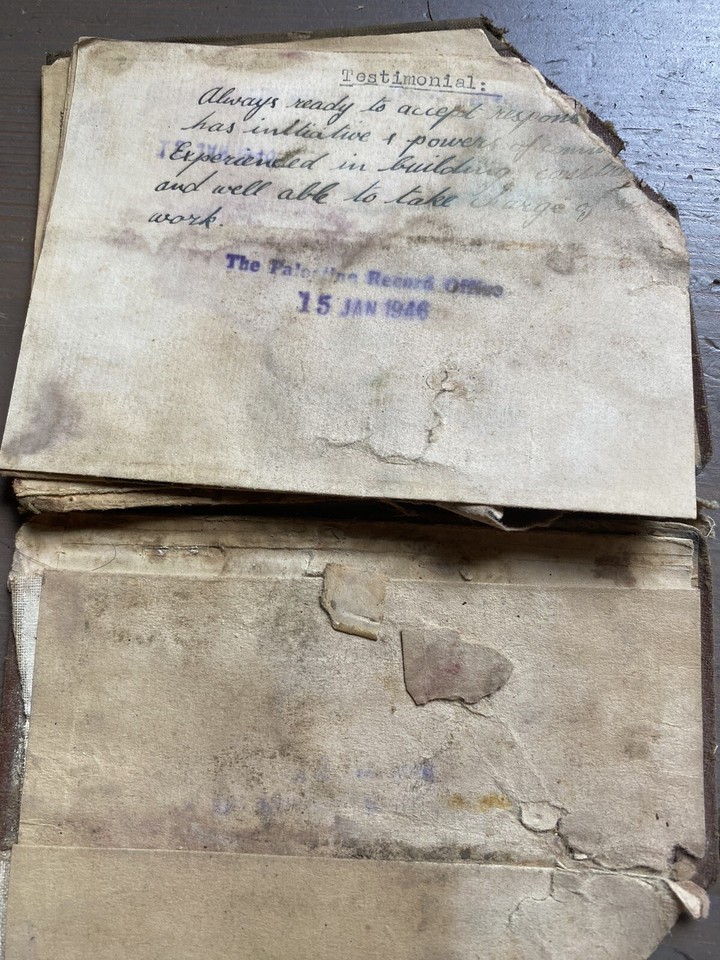 Testimonial:
Always ready to accept respon
has initiative & powers of
Experienced in building
and well able to take charge of
work.
The Palestine Record Office
15 JAN 1946